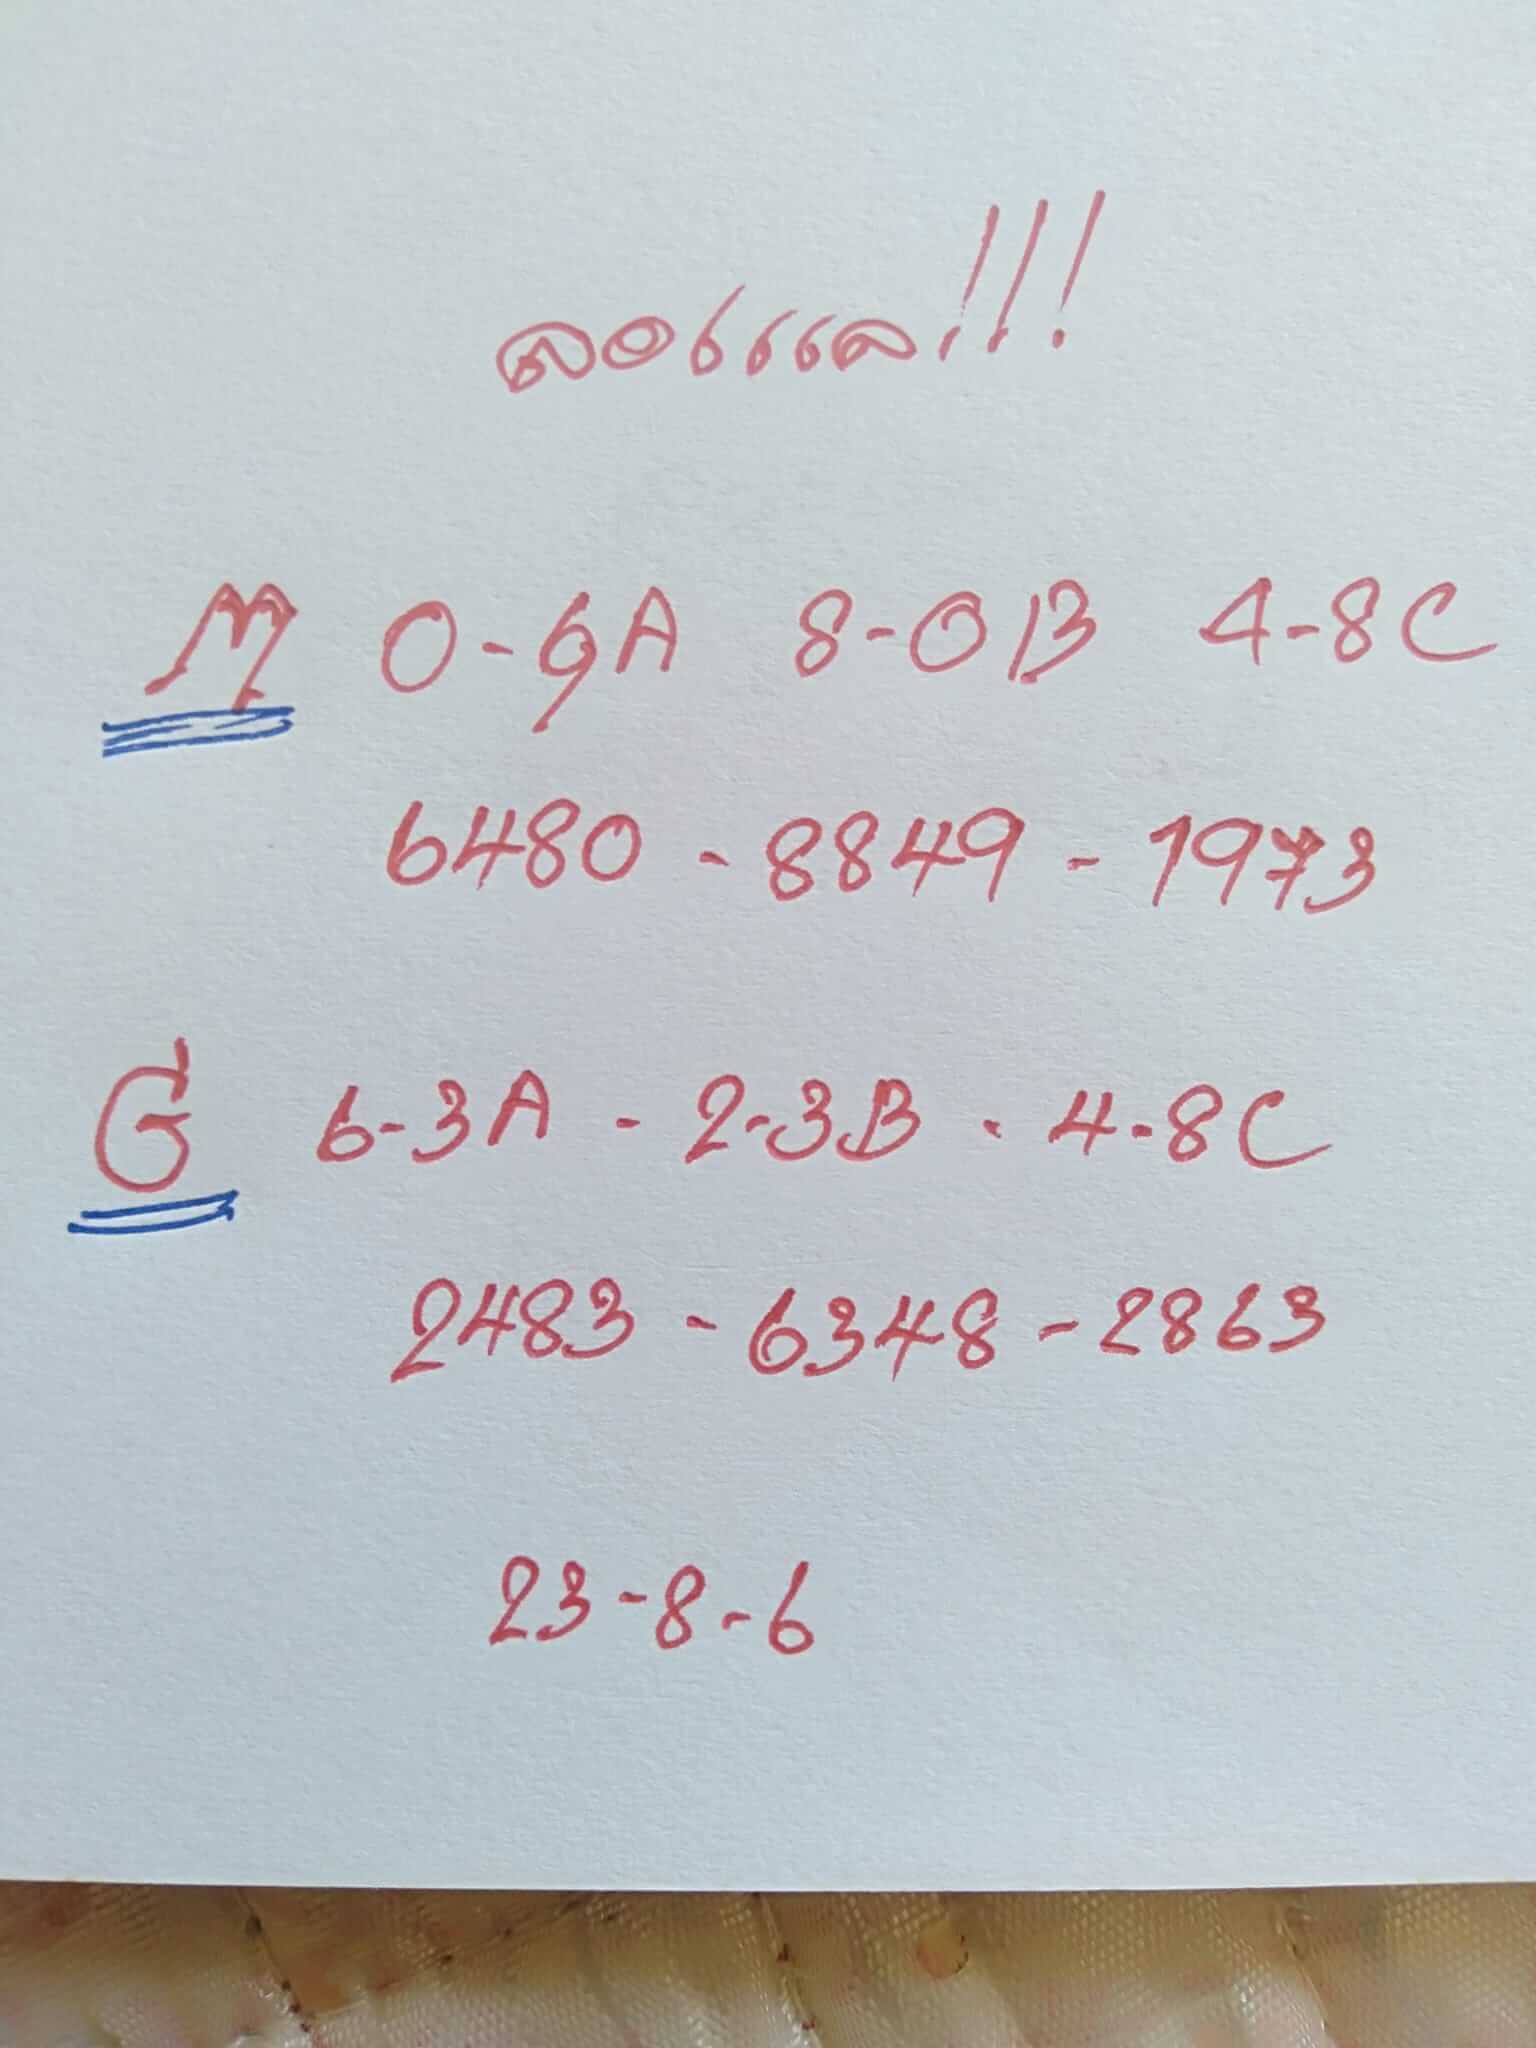 M 0-9A 8-0B 4-8C
6480 - 8849 - 1973
G 6-3A - 2-3B - 4-8C
2483 - 6348 - 2863
23-8-6